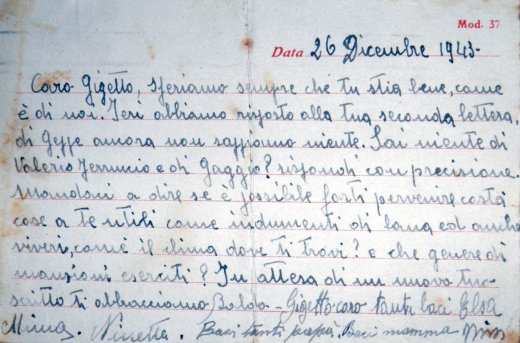 Mod. 37
Data 26 Dicembre 1943-
Caro Gigetto, speriamo sempre che tu stia bene, come
è di noi. Ieri abbiamo risposto alla tua seconda lettera,
di Geppe ancora non sappiamo niente. Sai niente di
Valerio Ferruccio e di Gaggio? rispondi con precisione.
Mandaci a dire se è possibile farti pervenire costà
cose a te utili come indumenti di lana ed anche
viveri, com'è il clima dove ti trovi? e che genere di
mansioni eserciti? In attesa di un nuovo tuo
scritto ti abbracciamo Baldo - Gigetto caro tanti baci Elsa
Mima. Ninetta. Baci tanti papà. Baci mamma